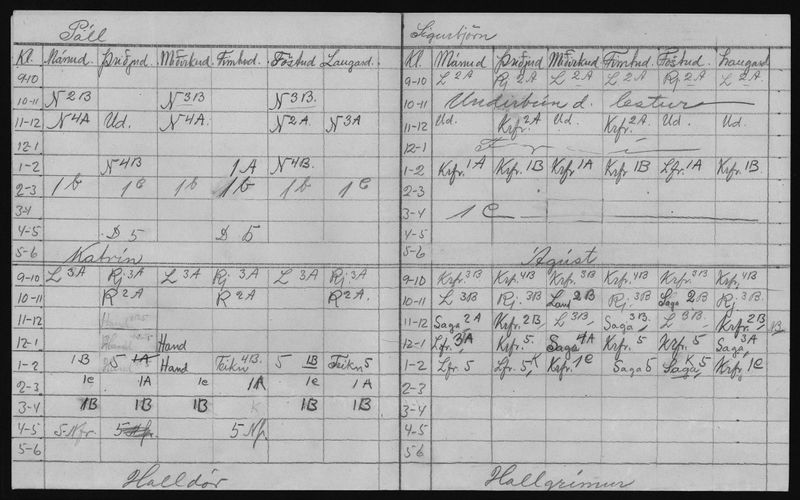 Páll
Kl. Mánud. Þriðjud Miðvikud. Fimtud. Föstud Laugard.
9-10
10-11 N 2B N 3B N 3B.
11-12 N 4A Ud. N 4A. N 2A. N 3A
12-1
1-2 N 4B 1A N 4B.
2-3 1b 1c 1b 1b 1b 1c
3-4
4-5 D 5 D 5
5-6 Katrín
9-10 L 3A Rj 3A L 3A Rj 3A L 3A Rj 3A
10-11 R 2A R 2A R 2A.
11-12
12-1 Hand
1-2 1B 5 1A Hand Teikn 4B. 5 1B Teikn 5
2-3 1c 1A 1c 1A 1c 1A
3-4 1B 1B 1B K 1B 1B
4-5 5 Nfr. 5 Nfr. 5 Nfr
5-6
Halldór
Sigurbjörn
Kl. Mánud Þriðjud Miðvikud Fimtud. Föstud. Laugard
9-10 L 2A Rj 2A L 2A L 2A Rj 2A L 2A.
10-11 Undirbún d. lestur
11-12 Ud. Krfr. 2A Ud. Krfr. 2A Ud. Ud.
12-1 F r í
1-2 Krfr. 1A Krfr. 1B Krfr 1A Krfr 1B Lfr. 1A Krfr. 1B
2-3
3-4 1C
4-5
5-6 Ágúst
9-10 Krfr. 3B Krfr. 4B Krfr. 3B Krfr. 4B Krfr. 3B Krfr. 4B
10-11 L 3B Rj. 3B Land 2B Rj 3B Saga 2B Rj 3B.
11-12 Saga 2A Krfr. 2B, L 3B, Saga 3B, L 3B. Krfr. 2B,
12-1 Lfr. 3A Krfr. 5. Saga 4A Krfr. 5 Krfr. 5 Saga 3A
1-2 Lfr. 5 Lfr. 5, K Krfr. 1c Saga 5 Saga K 5 Krfr. 1c
2-3
3-4
4-5
5-6
Hallgrímur